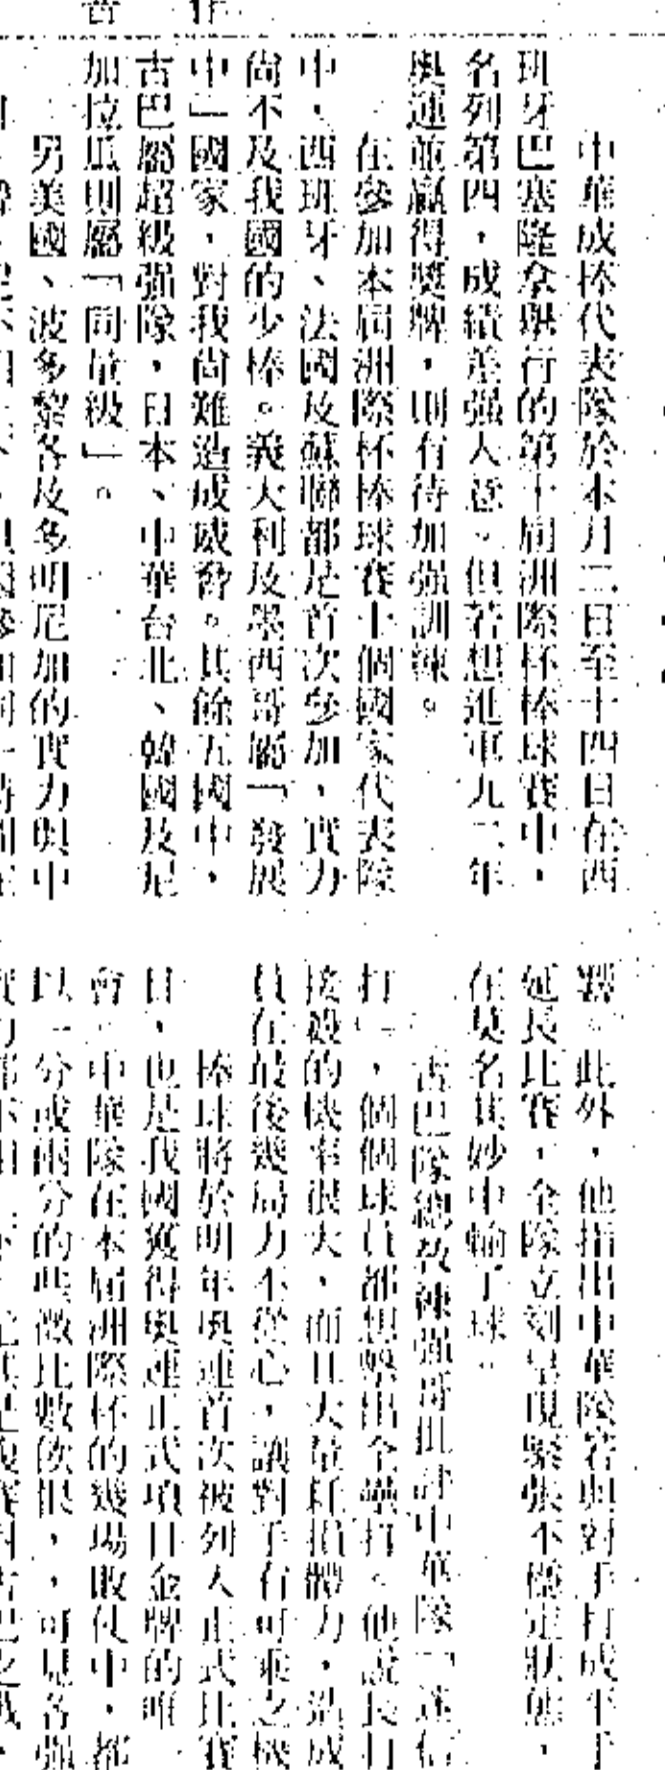 中華成棒代表隊於本月二日至十四日在西
班牙巴塞隆拿舉行的第十屆洲際杯棒球賽中，
名列第四，成績差强人意。但若想進軍九二年
奥運並贏得獎牌，則有待加强訓練。
在參加本屆洲際杯棒球賽十個國家代表隊
中，西班牙、法國及蘇聯都是首次參加，實力
尚不及我國的少棒。義大利及墨西哥屬「發展
中」國家，對我尚難造成威脅。其餘五國中，
古巴屬超級强隊，日本、中華台北、韓國及尼
加拉瓜則屬「同量級」。
另美國、波多黎各及多明尼加的實力與中
此外，他指出中華隊若與對手打成平手
延長比賽，全隊立刻呈現緊張不穩定狀態，
在莫名其妙中輸了球。
古巴隊總教練批評中華隊「迷信
打」，個個球員都想擊出全壘打。他說長打
接殺的機率很大，而且大量耗損體力，造成
員在最後幾局力不從心，讓對手有可乘之機
棒球將於明年奥運首次被列入正式比賽
目，也是我國獲得奥運正式項目金牌的唯
會。中華隊在本屆洲際杯的幾場敗仗中，都
以一分或兩分的些微比數飲恨，可見各强